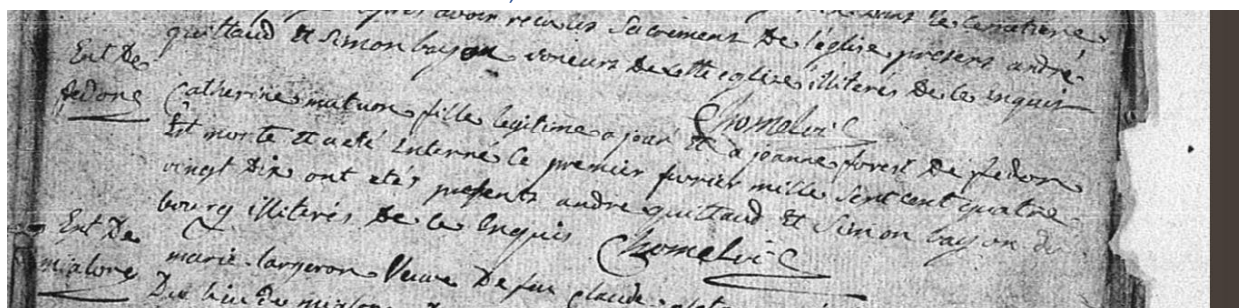 avoir recu les Sacrement De l'église, presens andré
guittaud et Simon bayon voisieurs De cette eglise illiterés De ce enquis
Chomelix
Ent De
fedong
Catherine matuon fille legitime a jean et a jeanne forest De fedon
Est morte et a eté enterré le premier fevrier mille sept cent quatre
vingt Dix ont etés presents andre guittaud et Simon bayon du
bourg illiterés De ce Enquis
Chomelix
Ent De
mialong
marie largeron Veuve De feu claude
Du lieu De mialong